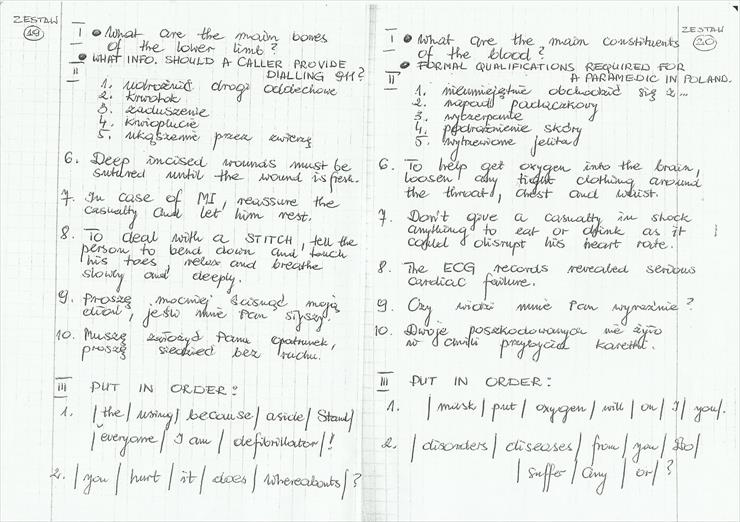 ZESTAW
19
I • What are the main bones
of the lower limb?
• WHAT INFO. SHOULD A CALLER PROVIDE
DIALLING 911?
II
1. udrożnić drogi oddechowe
2. krwotok
3. zaduszenie
4. krwioplucie
5. ukąszenie przez zwierzę
6. Deep incised wounds must be
sutured until the wound is fresh.
7. In case of MI, reassure the
casualty and let him rest.
8. To deal with a STITCH, tell the
person to bend down and touch
his toes relax and breathe
slowly and deeply.
9. Proszę mocniej ścisnąć moją
dłoń, jeśli mnie Pan słyszy.
10. Muszę założyć Panu opatrunek,
proszę siedzieć bez ruchu.
III PUT IN ORDER:
1. | the | using | because | aside | Stand |
| everyone | I am | defibrillator | !
2. | you | hurt | it | does | whereabouts | ?
ZESTAW
20
I • What are the main constituents
of the blood?
• FORMAL QUALIFICATIONS REQUIRED FOR
A PARAMEDIC IN POLAND.
II
1. nieumiejętnie obchodzić się z...
2. napad padaczkowy
3. wyczerpanie
4. podrażnienie skóry
5. wytrzewione jelita
6. To help get oxygen into the brain,
loosen any tight clothing around
the throat, chest and waist.
7. Don't give a casualty in shock
anything to eat or drink as it
could disrupt his heart rate.
8. The ECG records revealed serious
cardiac failure.
9. Czy widzi mnie Pan wyraźnie?
10. Dwoje poszkodowanych nie żyło
w chwili przybycia karetki.
III PUT IN ORDER:
1. | mask | put | oxygen | will | on | I | you |.
2. | disorders | diseases | from | you | Do |
| suffer | any | or | ?